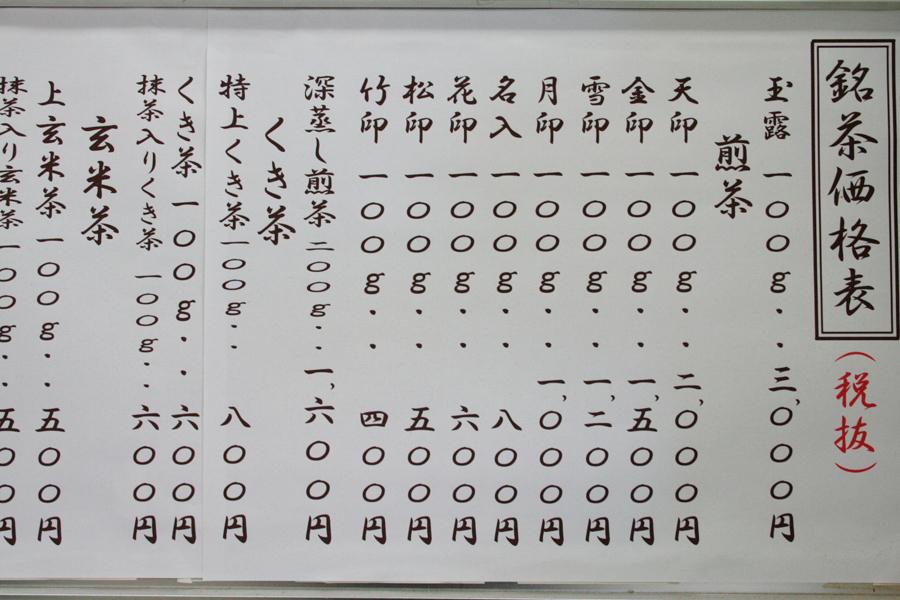 銘茶価格表
(税抜)
玉露 一〇〇g・・三、〇〇〇円
煎茶
天印 一〇〇g・・二、〇〇〇円
金印 一〇〇g・・一、五〇〇円
雪印 一〇〇g・・一、二〇〇円
月印 一〇〇g・・一、〇〇〇円
名入 一〇〇g・・八〇〇円
花印 一〇〇g・・六〇〇円
松印 一〇〇g・・五〇〇円
竹印 一〇〇g・・四〇〇円
深蒸し煎茶 二〇〇g・・一、六〇〇円
くき茶
特上くき茶 一〇〇g・・八〇〇円
くき茶 一〇〇g・・六〇〇円
抹茶入りくき茶 一〇〇g・・六〇〇円
玄米茶
上玄米茶 一〇〇g・・五〇〇円
抹茶入り玄米茶 一〇〇g・・五〇〇円